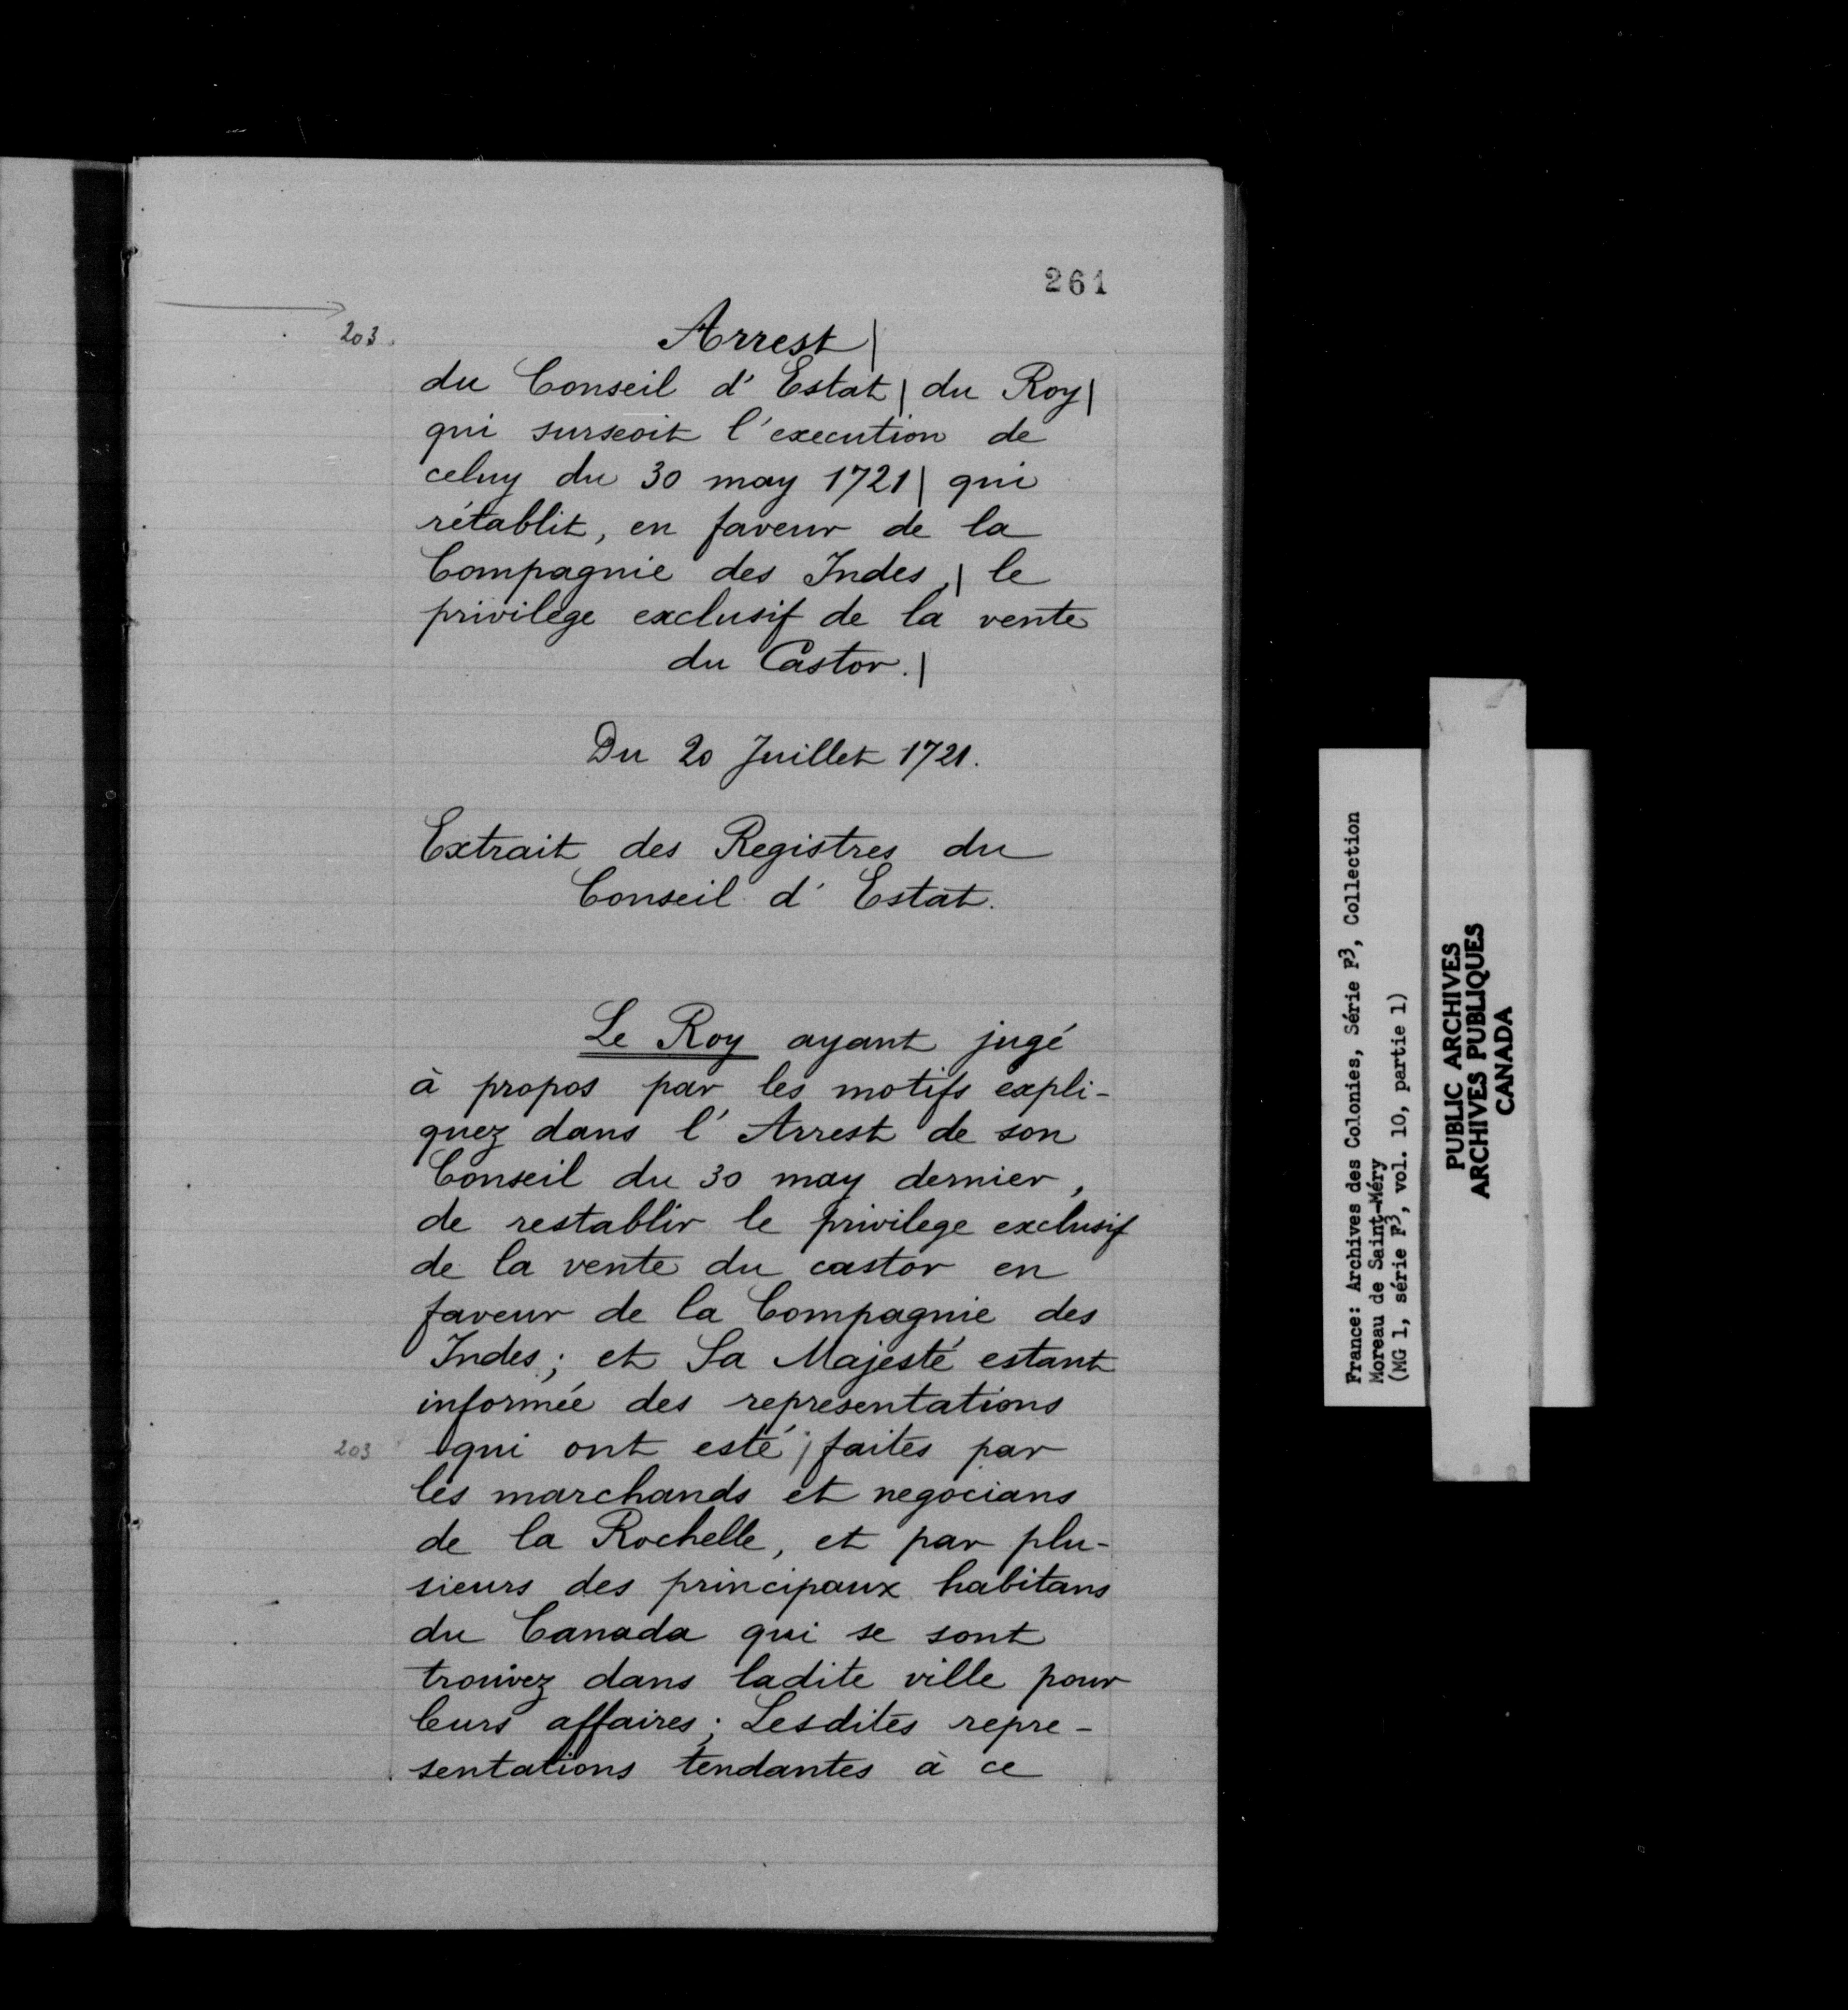 261
203.
Arrest |
du Conseil d'Estat | du Roy |
qui surseoit l'execution de
celuy du 30 may 1721 | qui
rétablit, en faveur de la
Compagnie des Indes, | le
privilege exclusif de la vente
du Castor. |
Du 20 Juillet 1721.
Extrait des Registres du
Conseil d'Estat.
Le Roy ayant jugé
à propos par les motifs expli-
quez dans l'Arrest de son
Conseil du 30 may dernier,
de restablir le privilege exclusif
de la vente du castor en
faveur de la Compagnie des
Indes; et Sa Majesté estant
informée des representations
203 qui ont esté | faites par
les marchands et negocians
de la Rochelle, et par plu-
sieurs des principaux habitans
du Canada qui se sont
trouvez dans ladite ville pour
leurs affaires; Lesdites repre-
sentations tendantes à ce
France: Archives des Colonies, Série F3, Collection
Moreau de Saint-Méry
(MG 1, série F3, vol. 10, partie 1)
PUBLIC ARCHIVES
ARCHIVES PUBLIQUES
CANADA